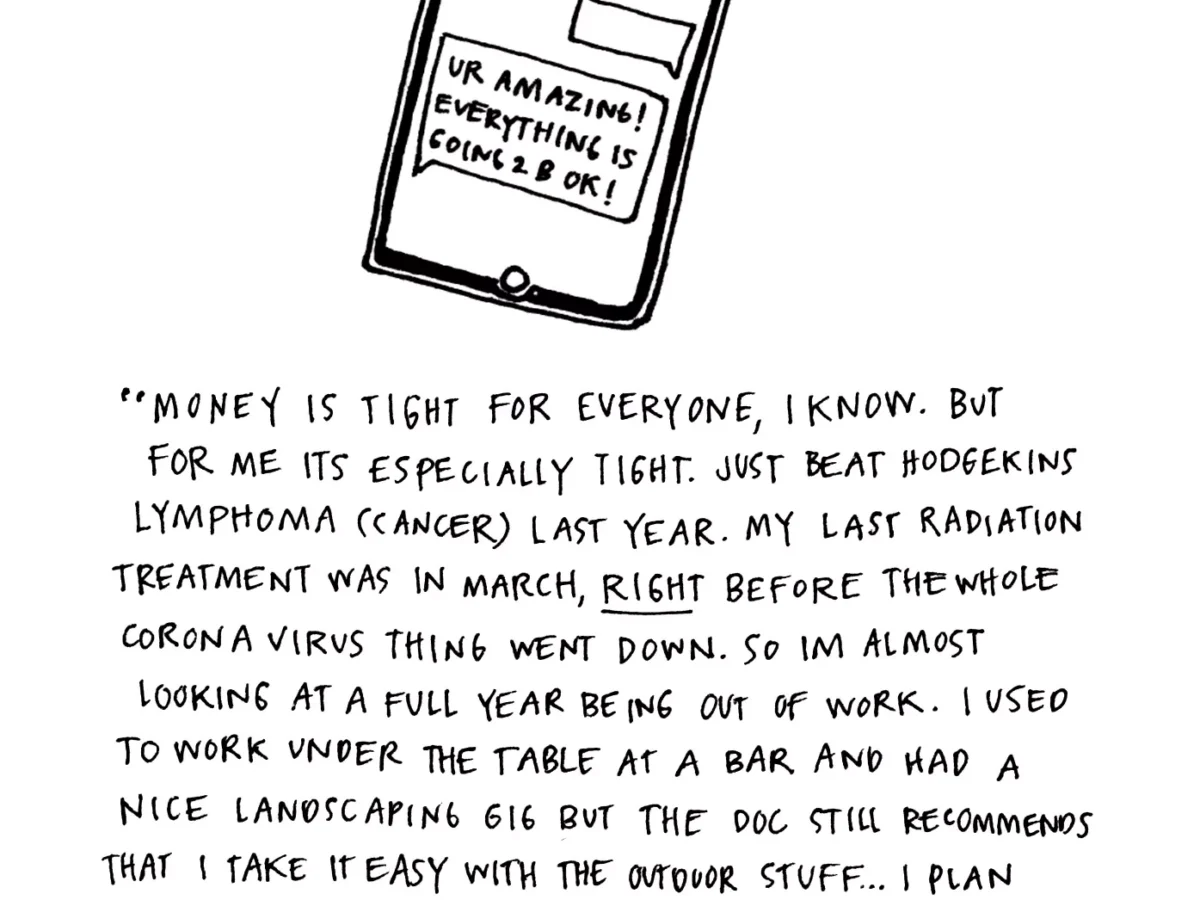 UR AMAZING!
EVERYTHING IS
GOING 2 B OK!
"MONEY IS TIGHT FOR EVERYONE, I KNOW. BUT
FOR ME ITS ESPECIALLY TIGHT. JUST BEAT HODGEKINS
LYMPHOMA (CANCER) LAST YEAR. MY LAST RADIATION
TREATMENT WAS IN MARCH, RIGHT BEFORE THE WHOLE
CORONA VIRUS THING WENT DOWN. SO IM ALMOST
LOOKING AT A FULL YEAR BEING OUT OF WORK. I USED
TO WORK UNDER THE TABLE AT A BAR AND HAD A
NICE LANDSCAPING GIG BUT THE DOC STILL RECOMMENDS
THAT I TAKE IT EASY WITH THE OUTDOOR STUFF... I PLAN